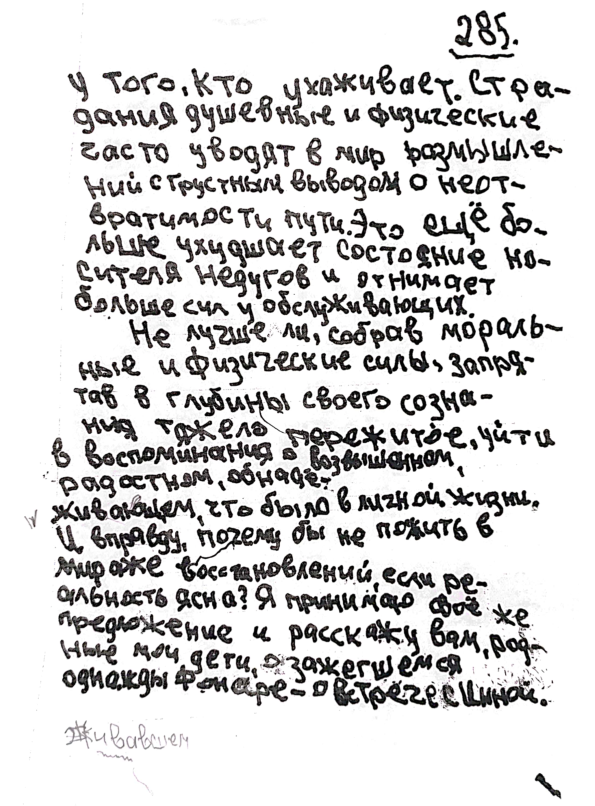 285.
у того, кто ухаживает. Стра-
дания душевные и физические
часто уводят в мир размышле-
ний с грустным выводом о неот-
вратимости пути. Это ещё бо-
льше ухудшает состояние но-
сителя недугов и отнимает
больше сил у обслуживающих.
Не лучше ли, собрав мораль-
ные и физические силы, запря-
тав в глубины своего созна-
ния тяжело пережитое, уйти
в воспоминания о возвышенном,
радостном, обнадё-
живающем, что было в личной жизни.
И вправду, почему бы не пожить в
мираже восстановлений, если ре-
альность ясна? Я принимаю своё же
предложение и расскажу вам, род-
ные мои дети, о зажегшемся
однажды фонаре – о встрече с Циной.
живавшем